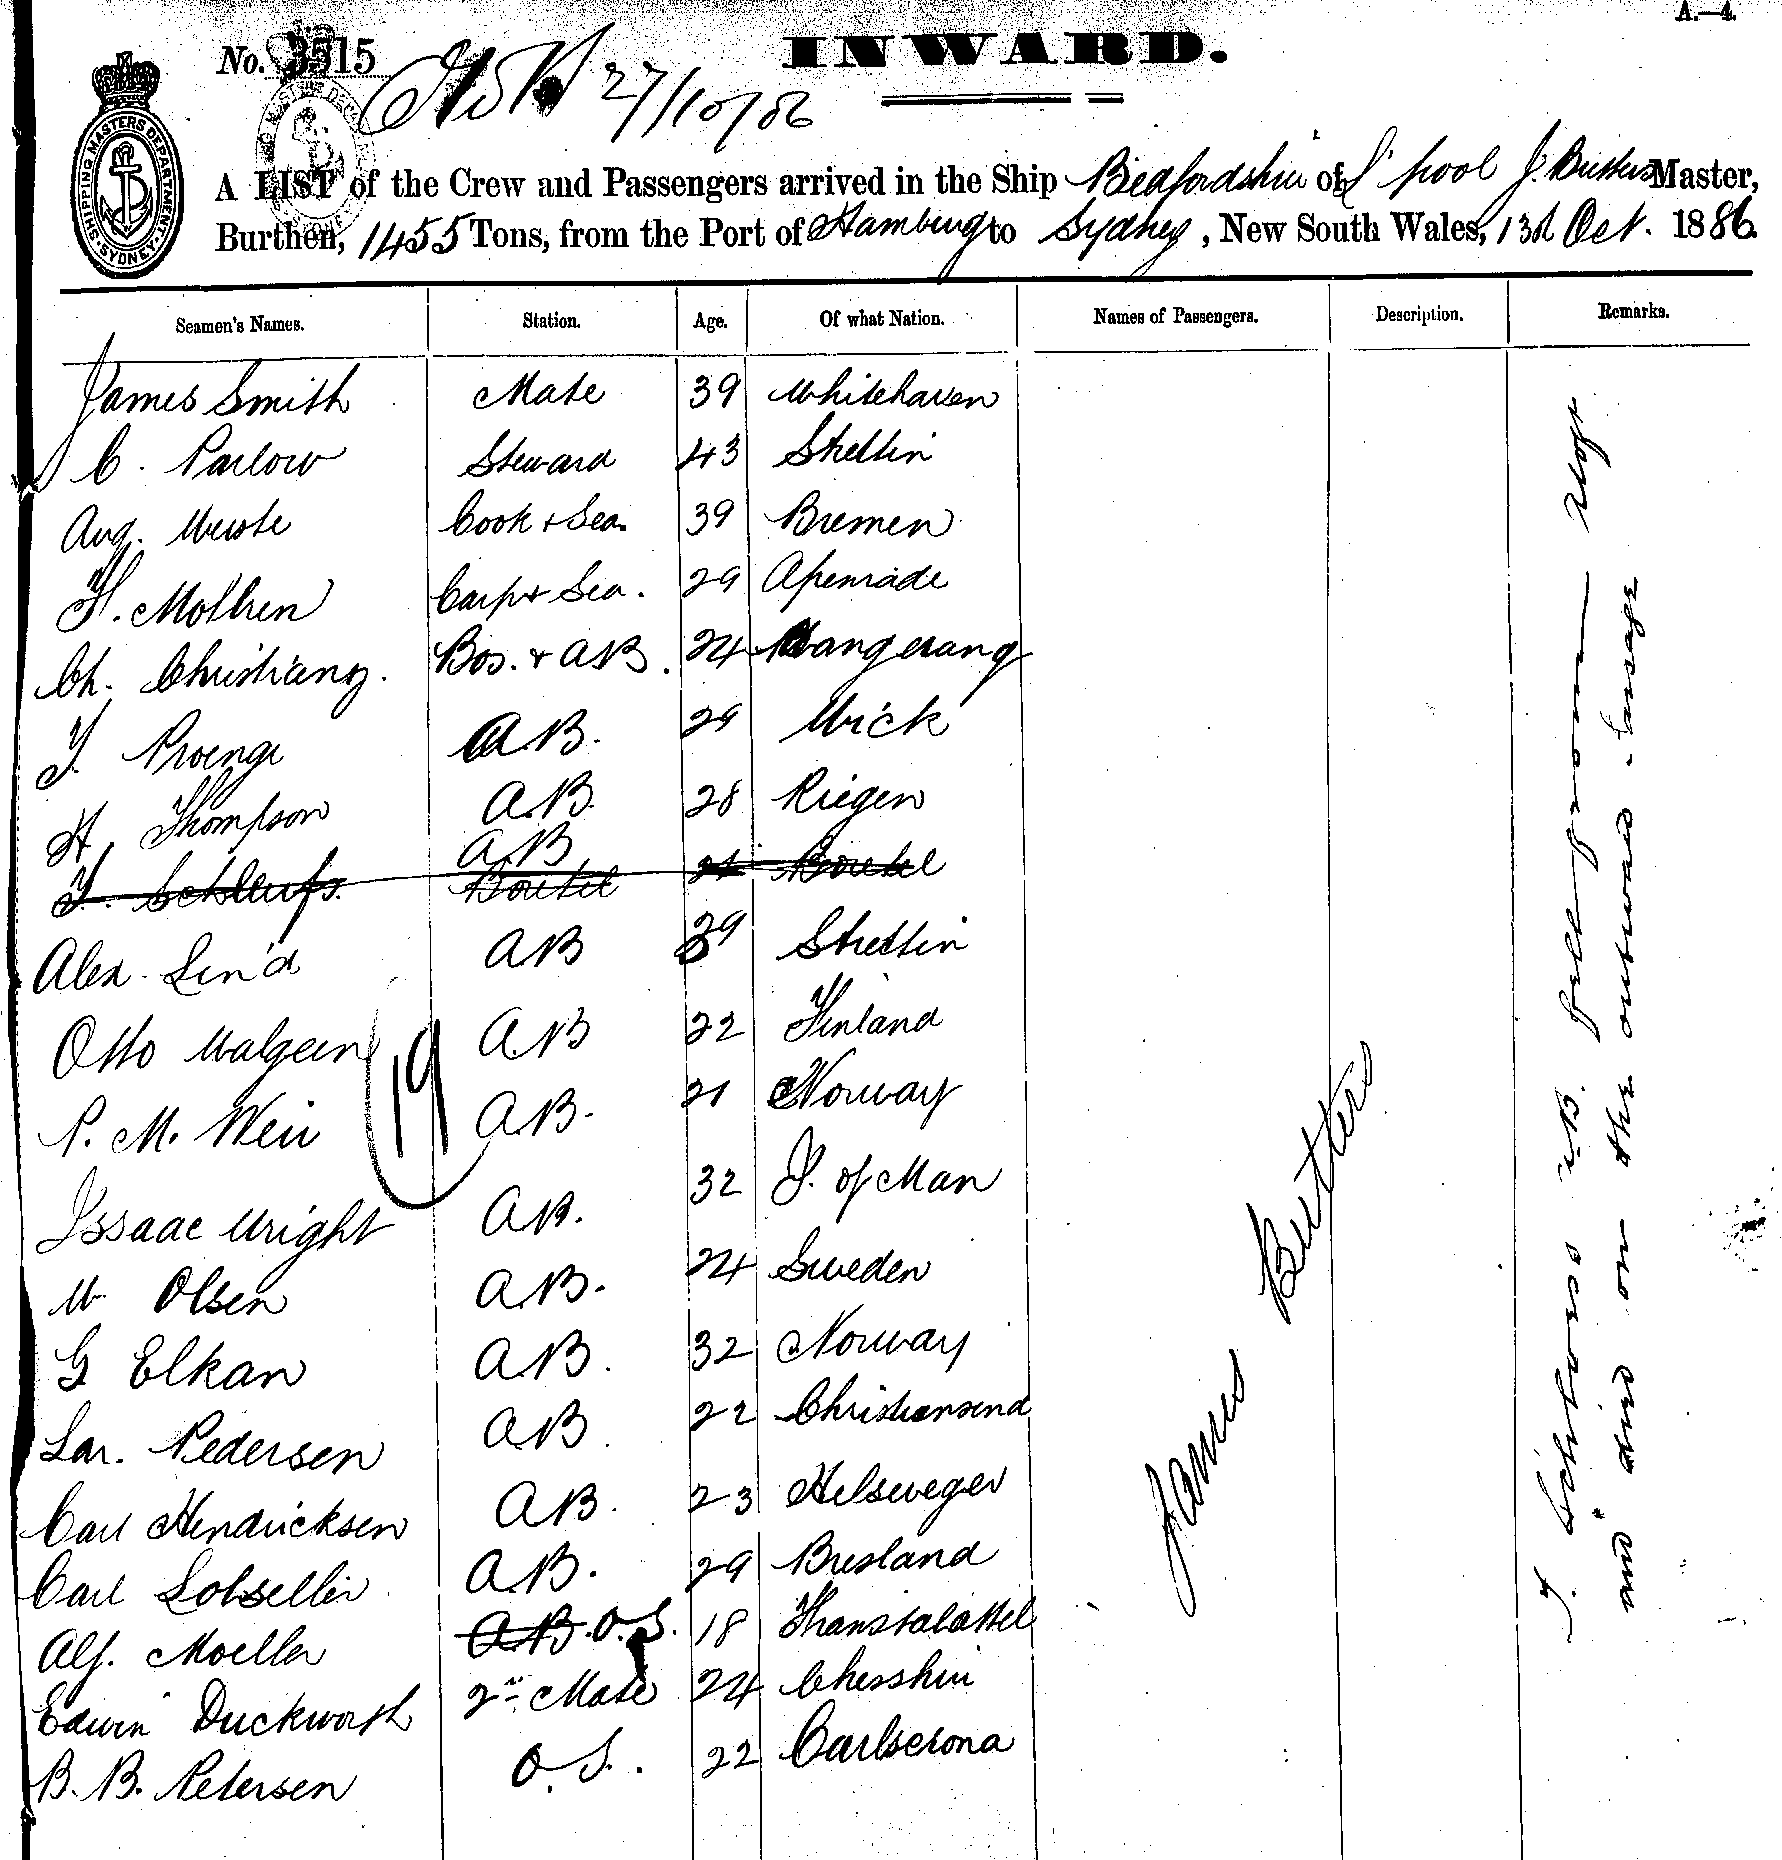 A.—4.
No. 3515
INWARD.
27/10/86
SHIPPING MASTERS DEPARTMENT SYDNEY
A LIST of the Crew and Passengers arrived in the Ship Bedfordshire of L'pool J. Butters Master,
Burthen, 1455 Tons, from the Port of Hamburg to Sydney, New South Wales, 13th Oct. 1886
Seamen's Names. Station. Age. Of what Nation. Names of Passengers. Description. Remarks.
James Smith Mate 39 Whitehaven
C. Parlow Steward 43 Stettin
Aug. Wuste Cook & Sea. 39 Bremen
H. Mothen Carp & Sea. 29 Apenrade
Ch. Christiang. Bos. & AB. 24 Wangerang
J. Proenge A.B. 29 Wick
H. Thompson A.B. 28 Riegen
AB
J. Schlufs. Boutel 21 Boutel
Alex. Lind AB 39 Stettin
Otto Walgeen A.B 22 Finland
P. M. Weir A.B. 21 Norway
19
Issaac Wright AB. 32 I. of Man
W Olsen A.B. 24 Sweden
G Elkan A.B. 32 Norway
Lar. Pedersen AB. 22 Christiansend
Carl Hendricksen AB. 23 Helseweger
Carl Lobsellin A.B. 29 Bresland
Alf. Moeller A.B. O.S. 18
Edwin Duckworth 2nd Mate 24 Chesshire
B. B. Petersen O.S. 22 Carlscrona
James Butters
J. A.B. fell from
and died on the outward passage